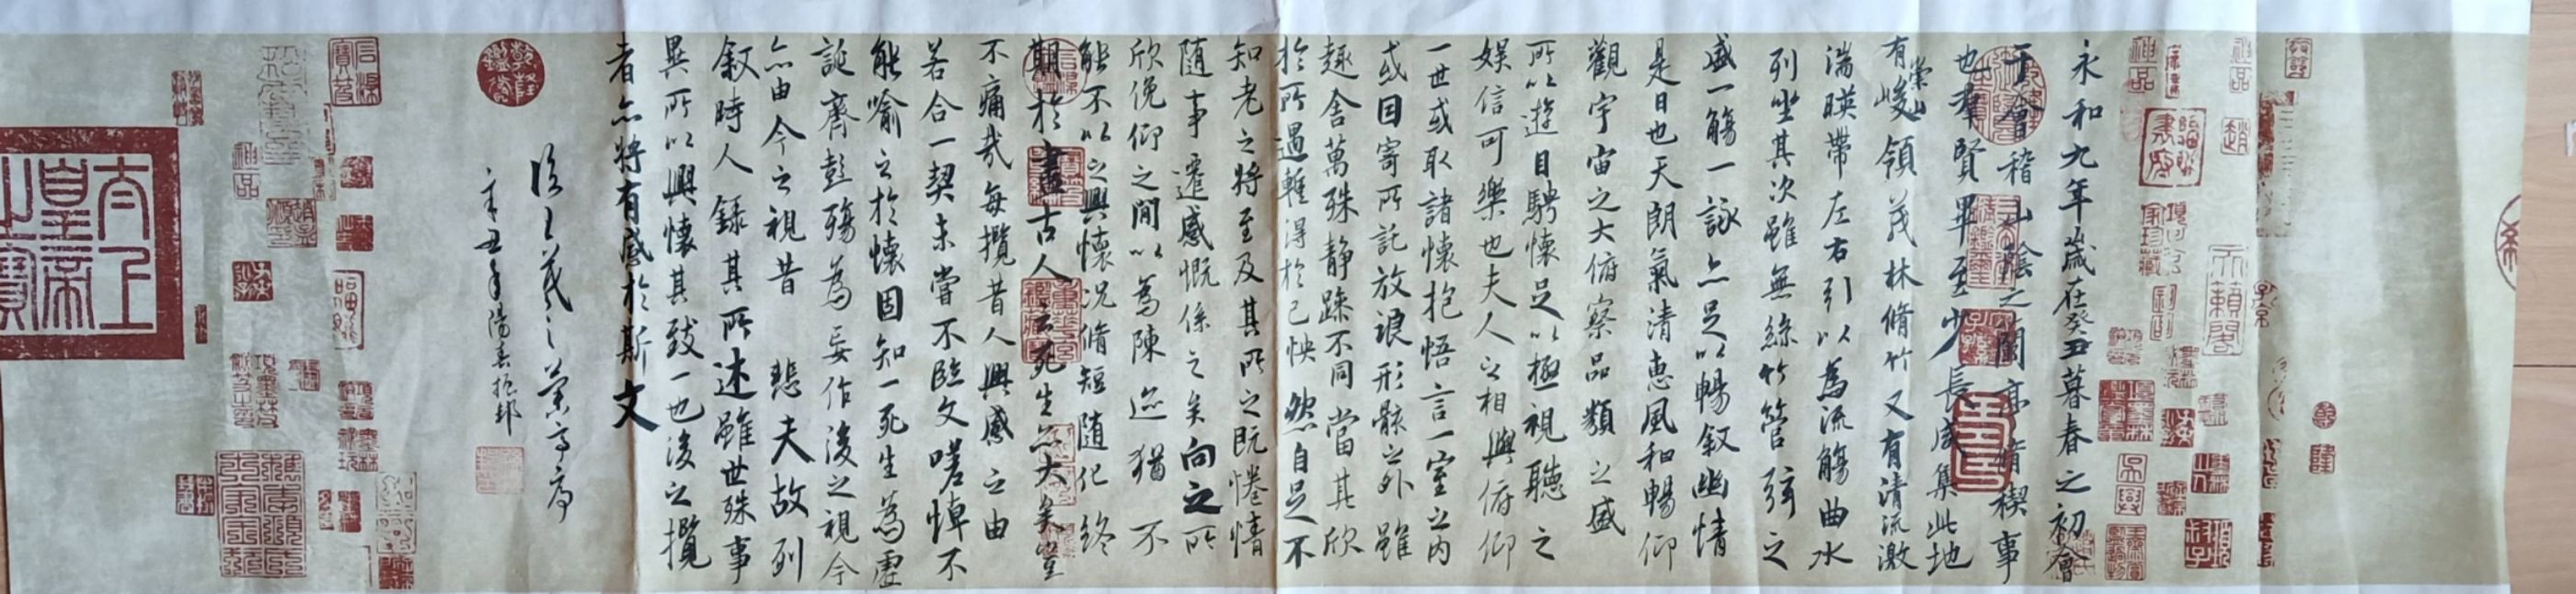 永和九年歲在癸丑暮春之初會
于會稽山陰之蘭亭脩稧事
也羣賢畢至少長咸集此地
有崇山峻領茂林脩竹又有清流激
湍暎帶左右引以為流觴曲水
列坐其次雖無絲竹管弦之
盛一觴一詠亦足以暢叙幽情
是日也天朗氣清惠風和暢仰
觀宇宙之大俯察品類之盛
所以遊目騁懷足以極視聽之
娛信可樂也夫人之相與俯仰
一世或取諸懷抱悟言一室之内
或因寄所託放浪形骸之外雖
趣舍萬殊静躁不同當其欣
於所遇輙得於己怏然自足不
知老之將至及其所之既惓情
隨事遷感慨係之矣向之所
欣俛仰之閒以為陳迹猶不
能不以之興懷況脩短随化終
期於盡古人云死生亦大矣豈
不痛哉每攬昔人興感之由
若合一契未嘗不臨文嗟悼不
能喻之於懷固知一死生為虛
誕齊彭殤為妄作後之視今
亦由今之視昔悲夫故列
叙時人錄其所述雖世殊事
異所以興懷其致一也後之攬
者亦將有感於斯文
臨王羲之蘭亭序
辛丑年陽春振邦
太上皇帝之寶